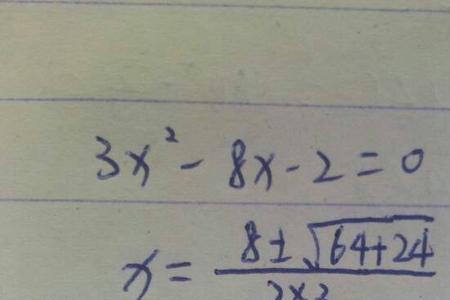 3x² - 8x - 2 = 0
x = (8 ± √(64+24)) / (2×3)